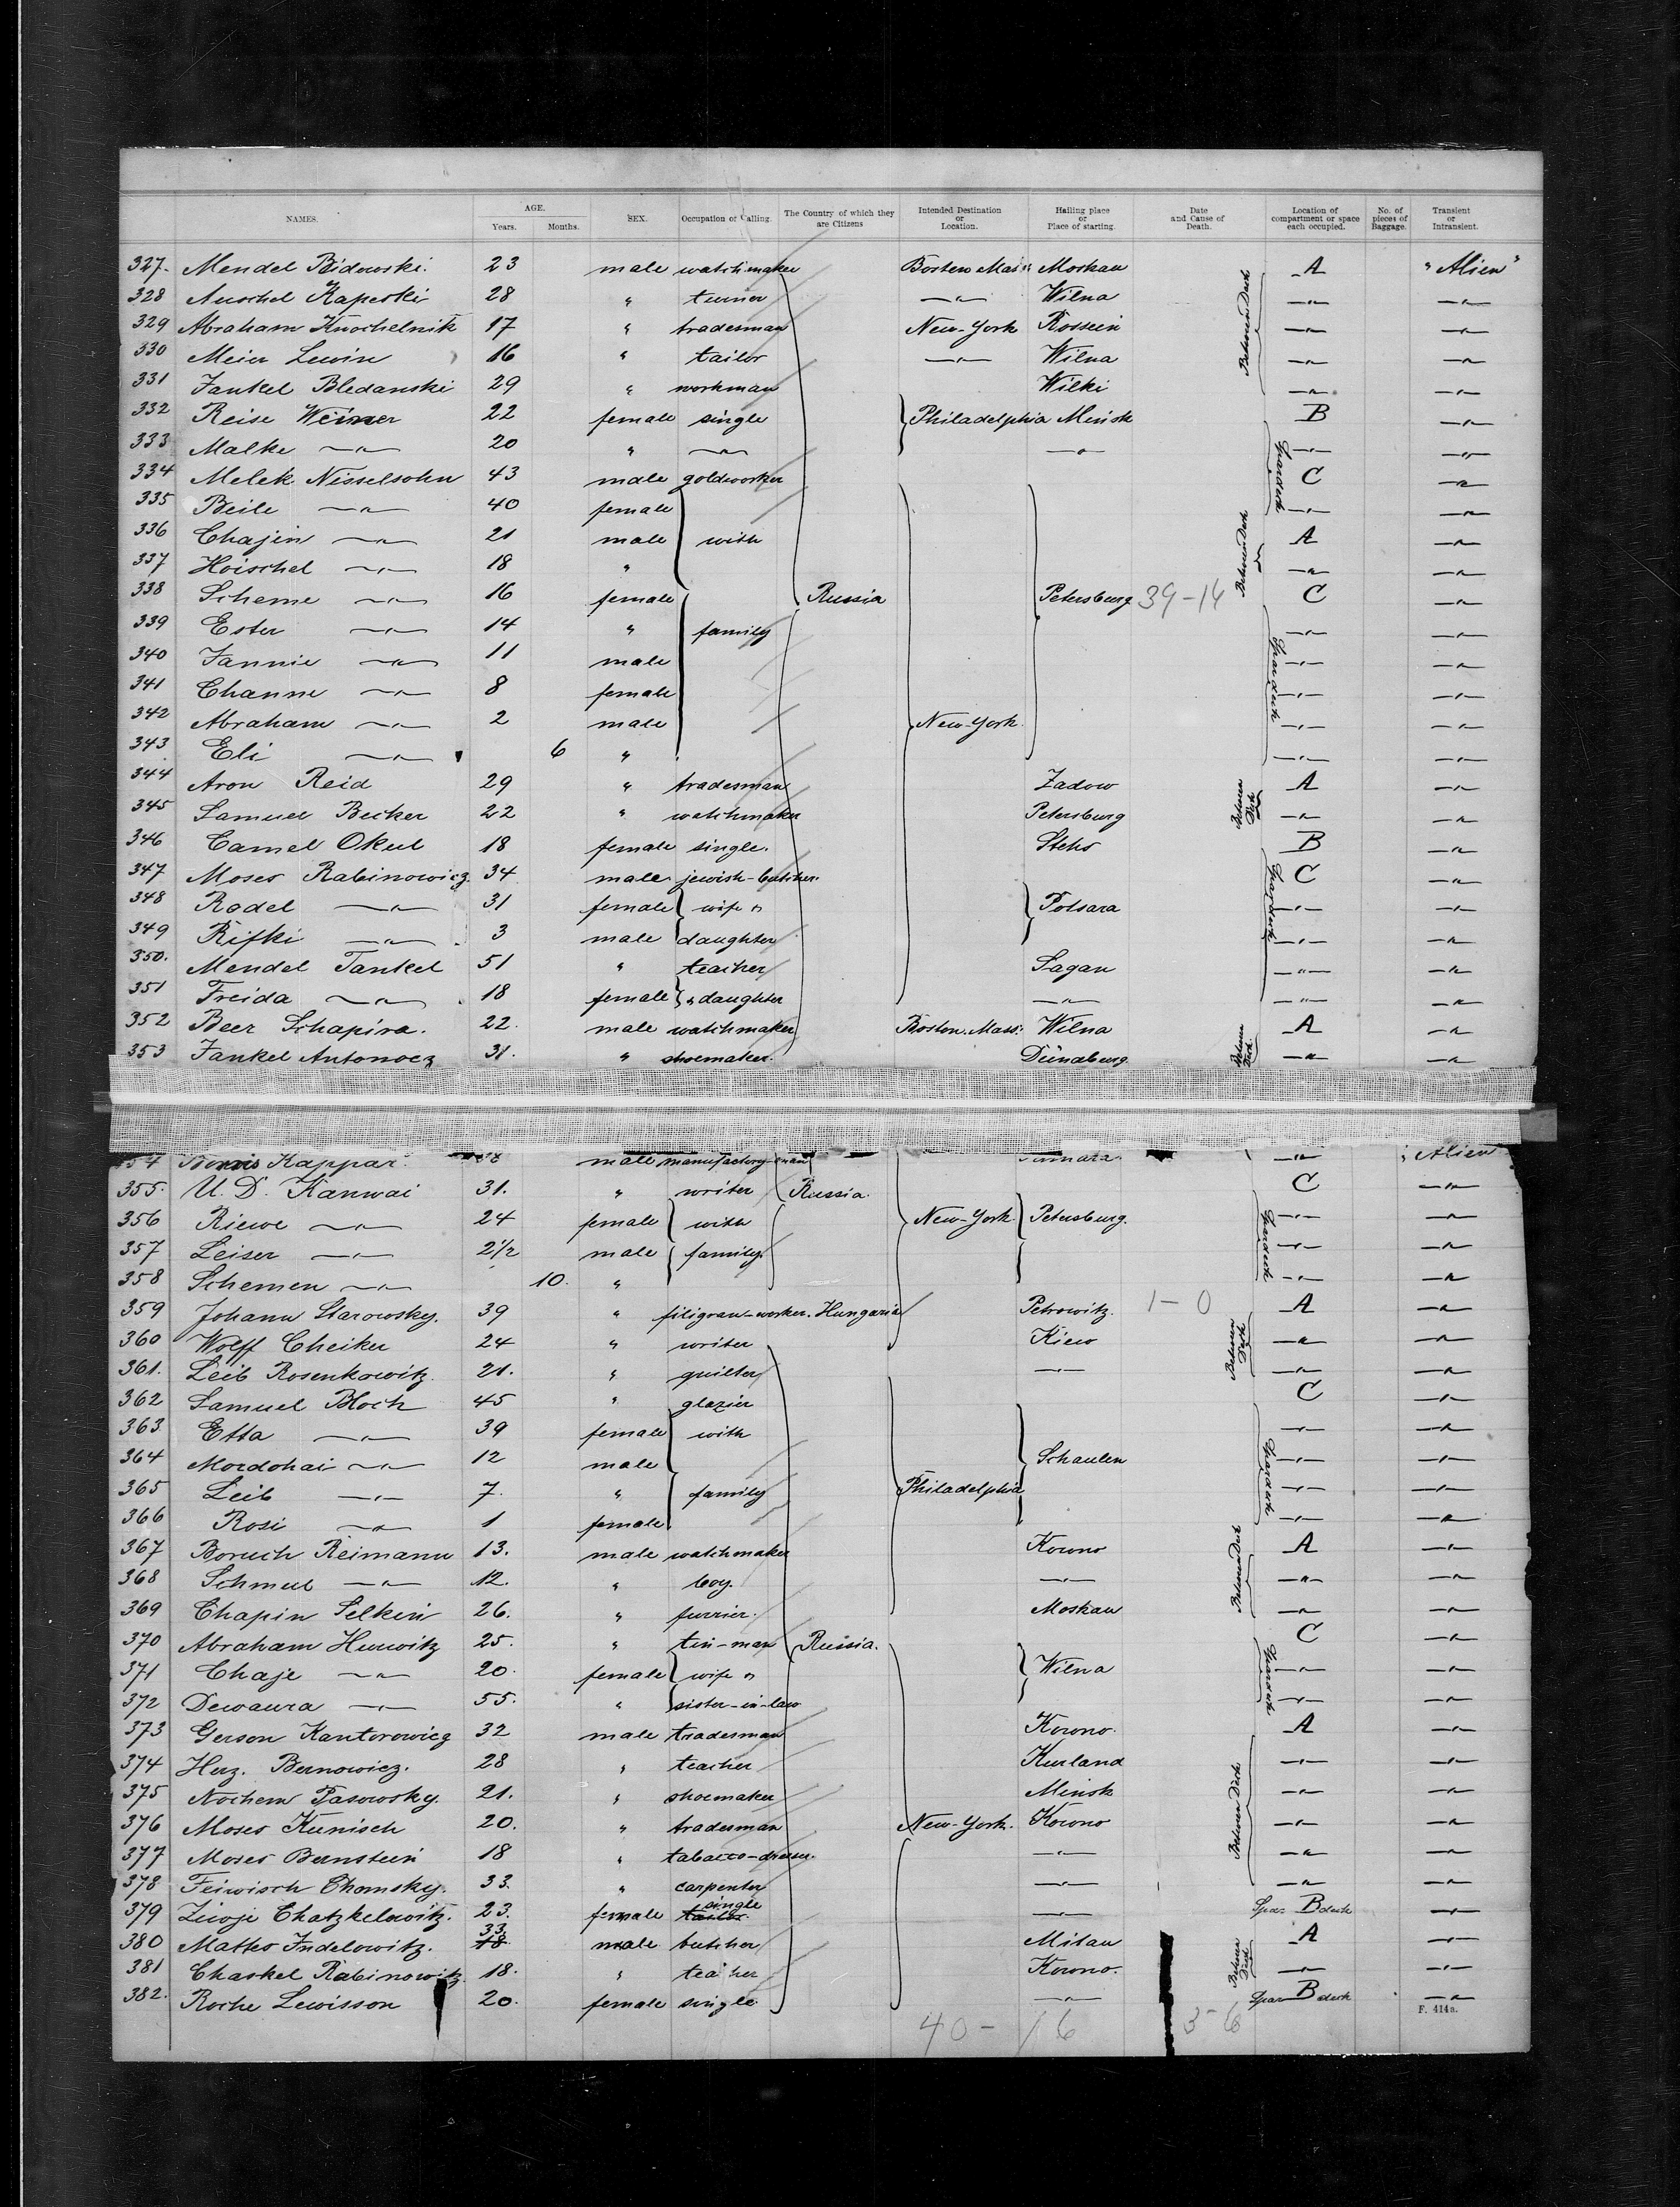 NAMES. AGE. Years. Months. SEX. Occupation or Calling. The Country of which they are Citizens Intended Destination or Location. Hailing place or Place of starting. Date and Cause of Death. Location of compartment or space each occupied. No. of pieces of Baggage. Transient or Intransient.
327. Mendel Bidowski. 23 male watchmaker Boston Mass: Moskau A "Alien"
328 Auschel Kapeski 28 " turner —"— Wilna —"— —"—
329 Abraham Knochelnik 17 " tradesman New-York Rossein —"— —"—
330 Meier Lewin 16 " tailor —"— Wilna —"— —"—
331 Jankel Bledanski 29 " workman Wilki —"— —"—
332 Reise Weiner 22 female single Philadelphia Minsk B —"—
333 Malke —"— 20 " —"— —"— —"— —"—
334 Melek Nisselsohn 43 male goldworker C —"—
335 Beile —"— 40 female —"— —"—
336 Chajin —"— 21 male with A —"—
337 Hoischel —"— 18 " —"— —"—
338 Scheme —"— 16 female Russia Petersburg 39-14 C —"—
339 Ester —"— 14 " family —"— —"—
340 Jannie —"— 11 male —"— —"—
341 Channe —"— 8 female —"— —"—
342 Abraham —"— 2 male New-York. —"— —"—
343 Eli —"— 6 " —"— —"—
344 Aron Reid 29 " tradesman Zadow A —"—
345 Samuel Becker 22 " watchmaker Petersburg —"— —"—
346 Camel Okul 18 female single. B —"—
347 Moses Rabinowicz 34 male jewish-butcher. C —"—
348 Rodel —"— 31 female wife " Polsara —"— —"—
349 Rifki —"— 3 male daughter —"— —"—
350. Mendel Tankel 51 " teacher Sagan —"— —"—
351 Freida —"— 18 female " daughter —"— —"— —"—
352 Beer Schapira. 22. male watchmaker Boston. Mass: Wilna A —"—
353 Jankel Antonocz 31. " shoemaker. Dünaburg —"— —"—
354 Kappar. male manufactory-man —"— "Alien
355. U. D. Kanwai 31. " writer Russia. C —"—
356 Riewe —"— 24 female with New-York Petersburg. —"— —"—
357 Leiser —"— 2 1/2 male family. —"— —"—
358 Schemen —"— 10. " —"— —"—
359 Johann Starowsky. 39 " filigran-worker. Hungaria Petrowitz. 1-0 A —"—
360 Wolff Cheiker 24 " writer Kiew —"— —"—
361. Leib Rosenkowitz. 21. " quilter —"— —"— —"—
362 Samuel Bloch 45 " glazier C —"—
363 Etta —"— 39 female with —"— —"—
364 Mordohai —"— 12 male Schaulen —"— —"—
365 Leib —"— 7. " family Philadelphia —"— —"—
366 Rosi —"— 1 female —"— —"—
367 Boruch Reimann 13. male watchmaker Kowno A —"—
368 Schmul —"— 12. " boy. —"— —"— —"—
369 Chapin Selkin 26. " furrier. Moskau —"— —"—
370 Abraham Hurwitz 25. " tin-man Russia. C —"—
371 Chaje —"— 20. female wife " Wilna —"— —"—
372 Dewaura —"— 55. " sister-in-law —"— —"—
373 Gerson Kantorowicz 32 male tradesman Kowno. A —"—
374 Herz. Bernowicz. 28 " teacher Kurland —"— —"—
375 Nochem Pasowsky. 21. " shoemaker Minsk —"— —"—
376 Moses Kunisch 20. " tradesman New-York. Kowno —"— —"—
377 Moses Bernstein 18 " —"— —"— —"—
378 Feiwisch Chomsky. 33. " carpenter —"— —"— —"—
379 Ziwoje Chatzkelowitz. 23. female single tailor. —"— Spar B deck —"—
380 Mattes Indelowitz. 33. 18. male butcher Mitau A —"—
381 Chaskel Rabinowitz. 18. " teacher Kowno. —"— —"—
382. Roche Lewisson 20. female single. —"— Spar B deck —"—
F. 414a.
40-16 3-6